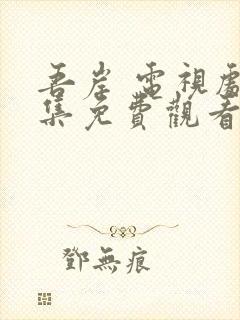 吾岸 電視劇
集免費觀看
鄧無痕